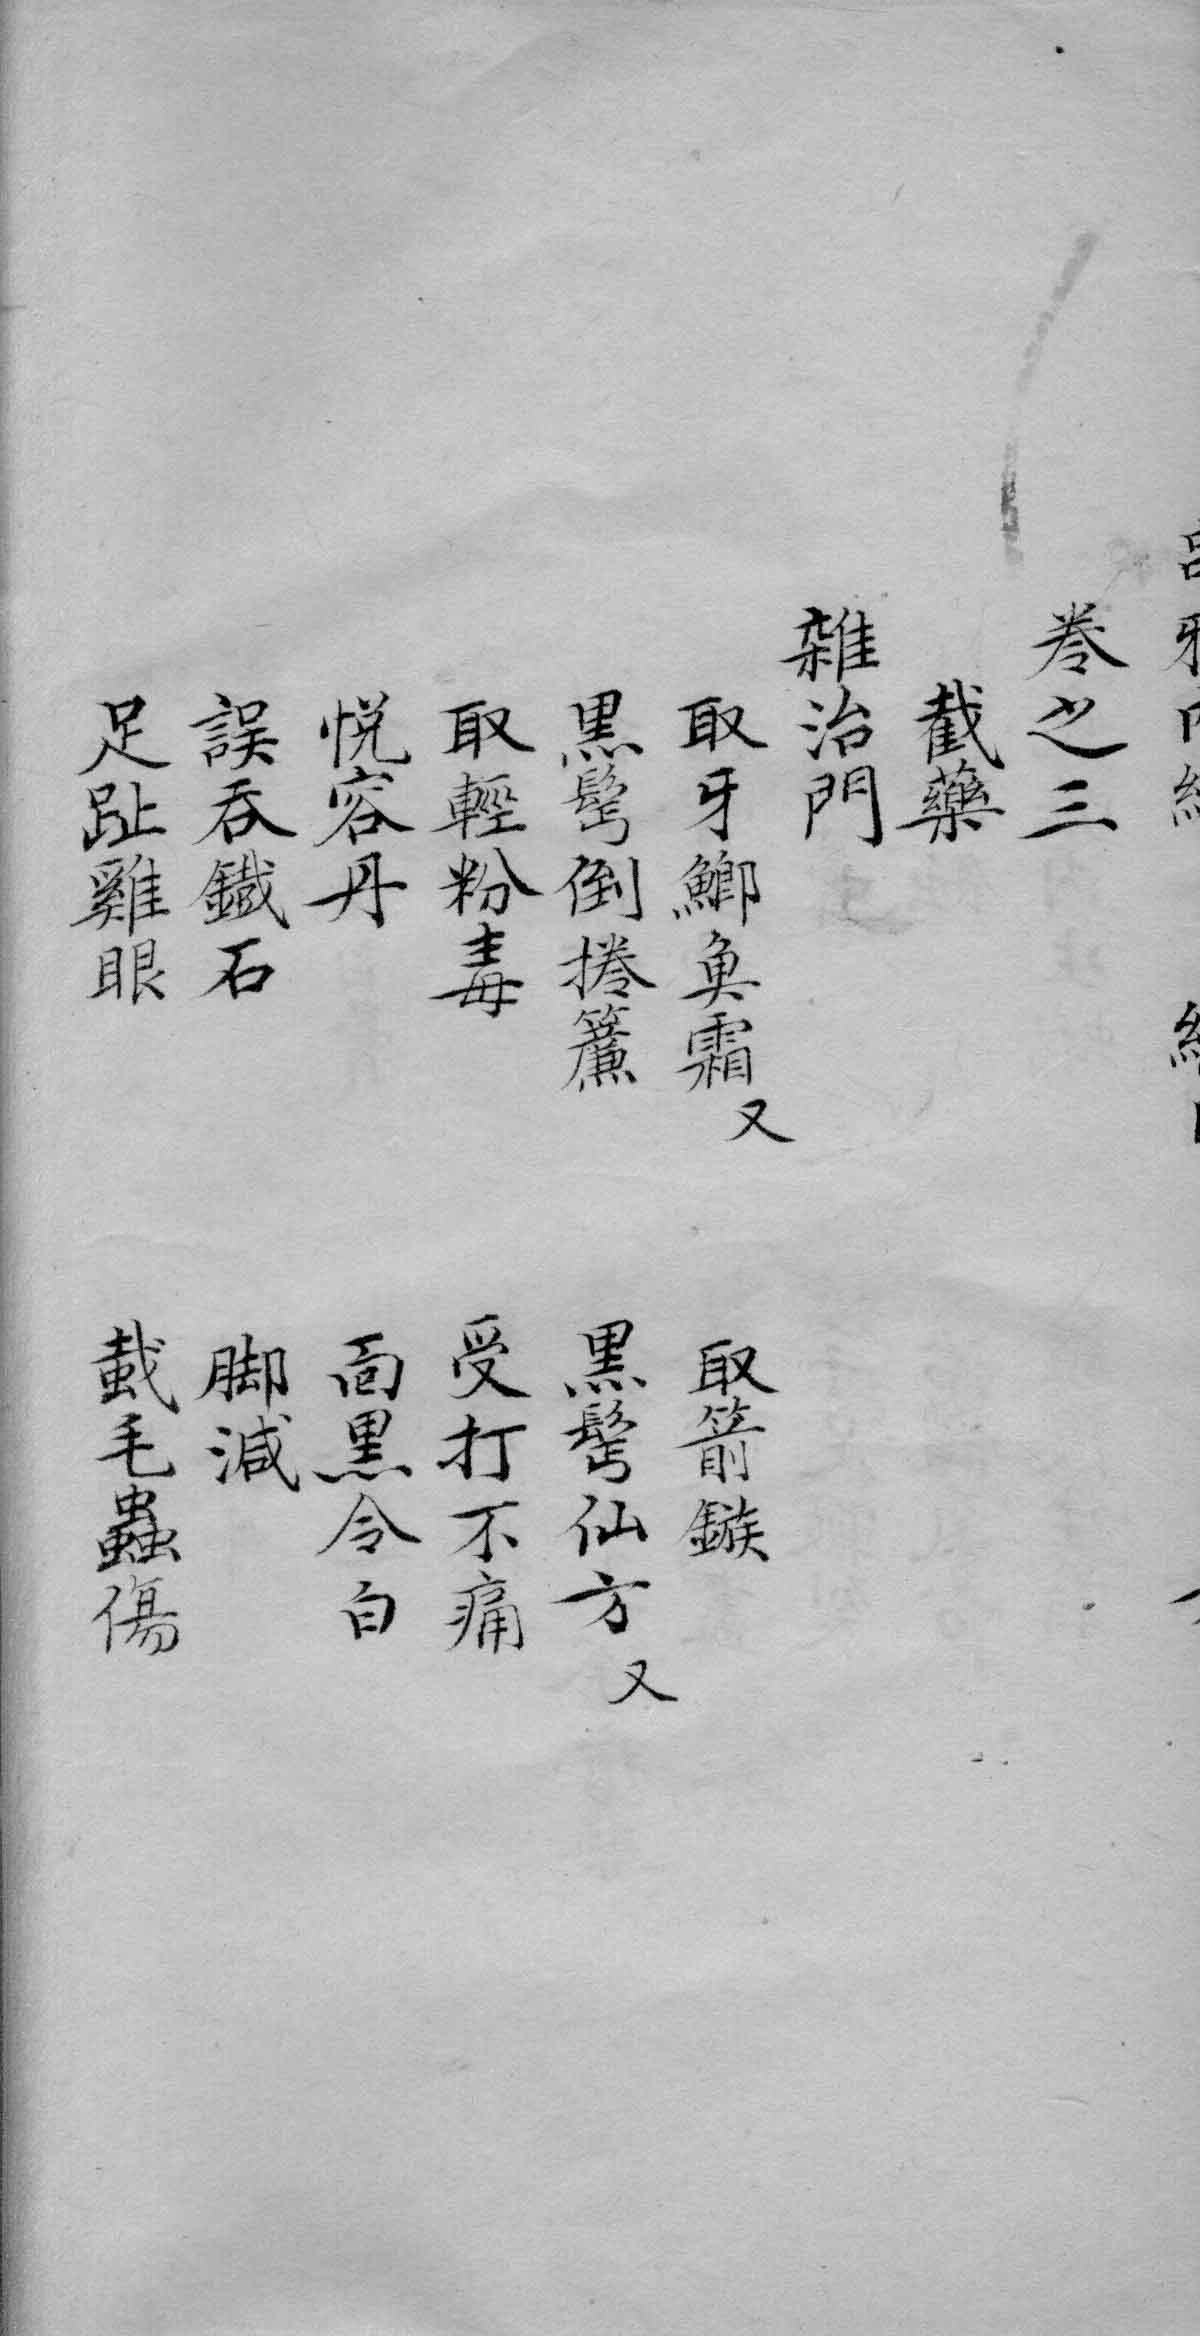 卷之三
截藥
雜治門
取牙鯽魚霜又　取箭鏃
黑髩倒捲簾　黑髩仙方又
取輕粉毒　受打不痛
悅容丹　面黑令白
誤吞鐵石　脚減
足趾雞眼　毛蟲傷